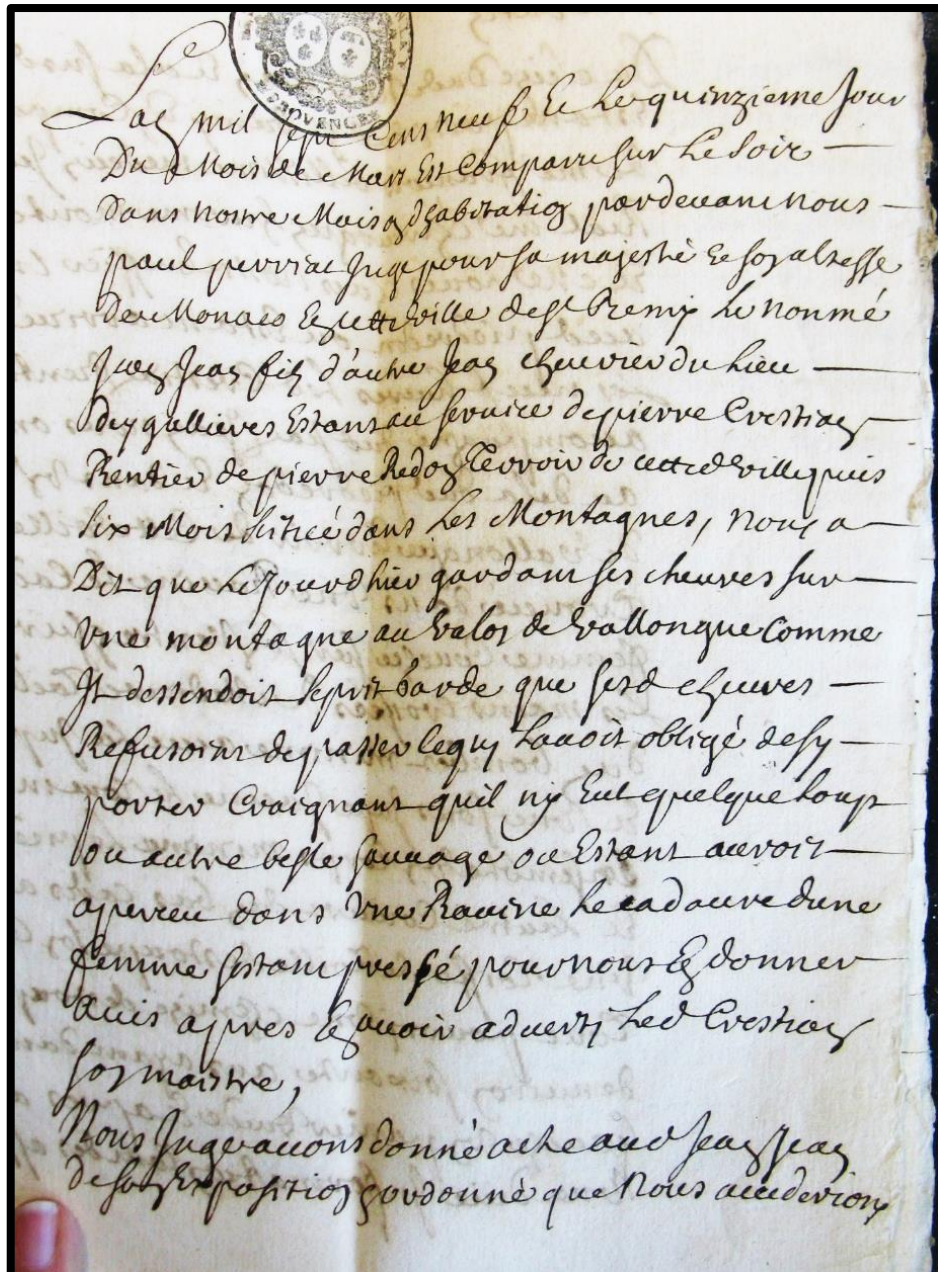 PROVENCE
Lan mil sept Cens neuf Et Le quinzieme Jour
Du Mois de Mars Est Comparu sur Le soir
Dans nostre Maison dhabitation pardevant nous
paul perriat Juge pour sa majesté et son altesse
De Monaco En cette ville de st Remy Le nommé
Jean Jean filz d'autre Jean chevrier du Lieu
deygallieres Estant au service de pierre Crestien
Rentier de pierre Redon Terroir de cetted ville puis
six Mois scitué dans Les Montagnes, nous a
Dit que Le Jourdhier gardant ses chevres sur
Vne montagne au valon de vallongue Comme
Il dessendoit Se prit garde que sesd chevres
Refusoint de passer Cequy Lavoit obligé de sy
porter Craignant quil ny Eut quelque Loup
ou autre beste sauvage ou Estant auroit
aperceu dans Vne Ravine Le cadavre dune
femme sestant pressé pour nous En donner
avis apres En avoir adverty Led Crestien
son maistre,
Nous Juge avons donné acte aud Jean Jean
de son Exposition & ordonné que Nous accederions